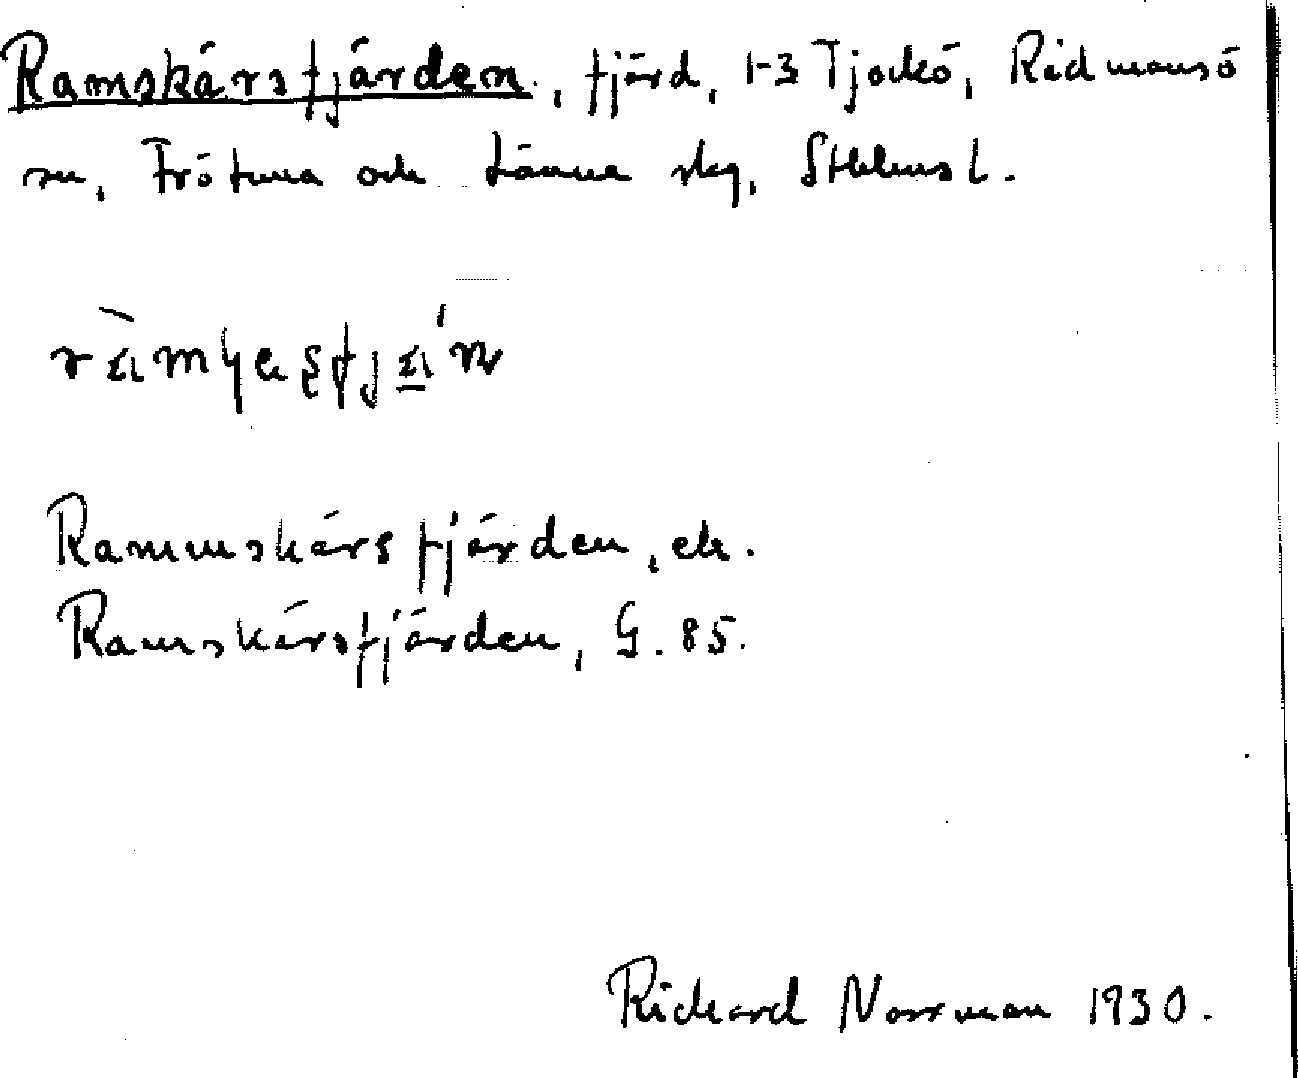 Ramskärsfjärden, fjärd, 1-3 Tjockö, Rådmansö
sn, Frötuna och Länna skg, Sthlms l.
Rammskärsfjärden, ek.
Ramskärsfjärden, G. 85.
Rickard Norrman 1930.